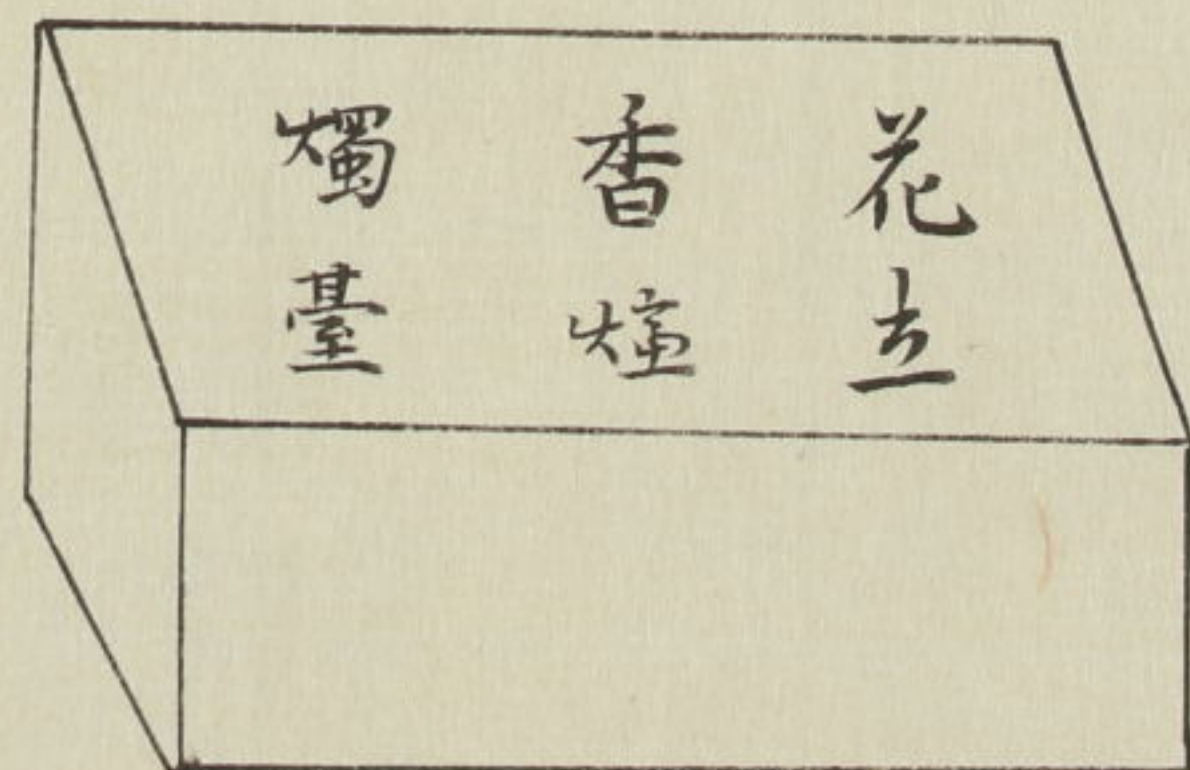 花立
香爐
燭臺